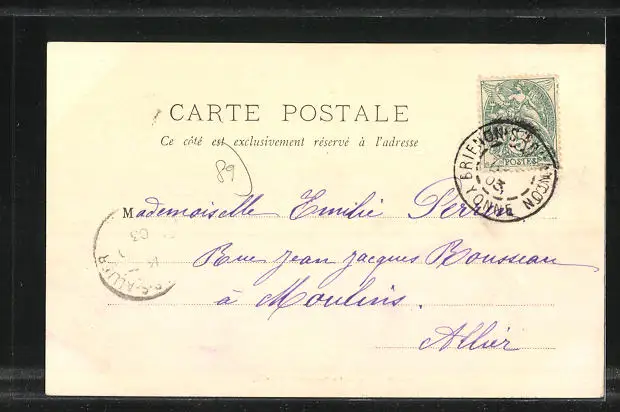 CARTE POSTALE
Ce côté est exclusivement réservé à l'adresse
89
POSTES
BRIENON
YONNE
03
Mademoiselle Emilie Perrin
Rue Jean Jacques Rousseau
à Moulins.
Allier
ALLIER
03